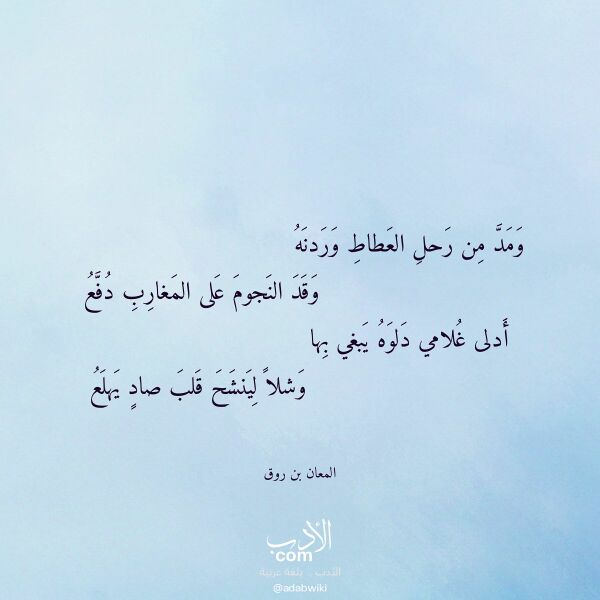 وَمَدَّ مِن رَحلِ العَطاطِ وَرَدنَهُ
وَقَدَ النَجومَ عَلى المَغارِبِ دُفَّعُ
أَدلى غُلامي دَلوَهُ يَبغي بِها
وَشلاً لِيَنشَحَ قَلبَ صادٍ يَهلَعُ
المعان بن روق
الأدب
com
الأدب .. بلغة عربية
@adabwiki